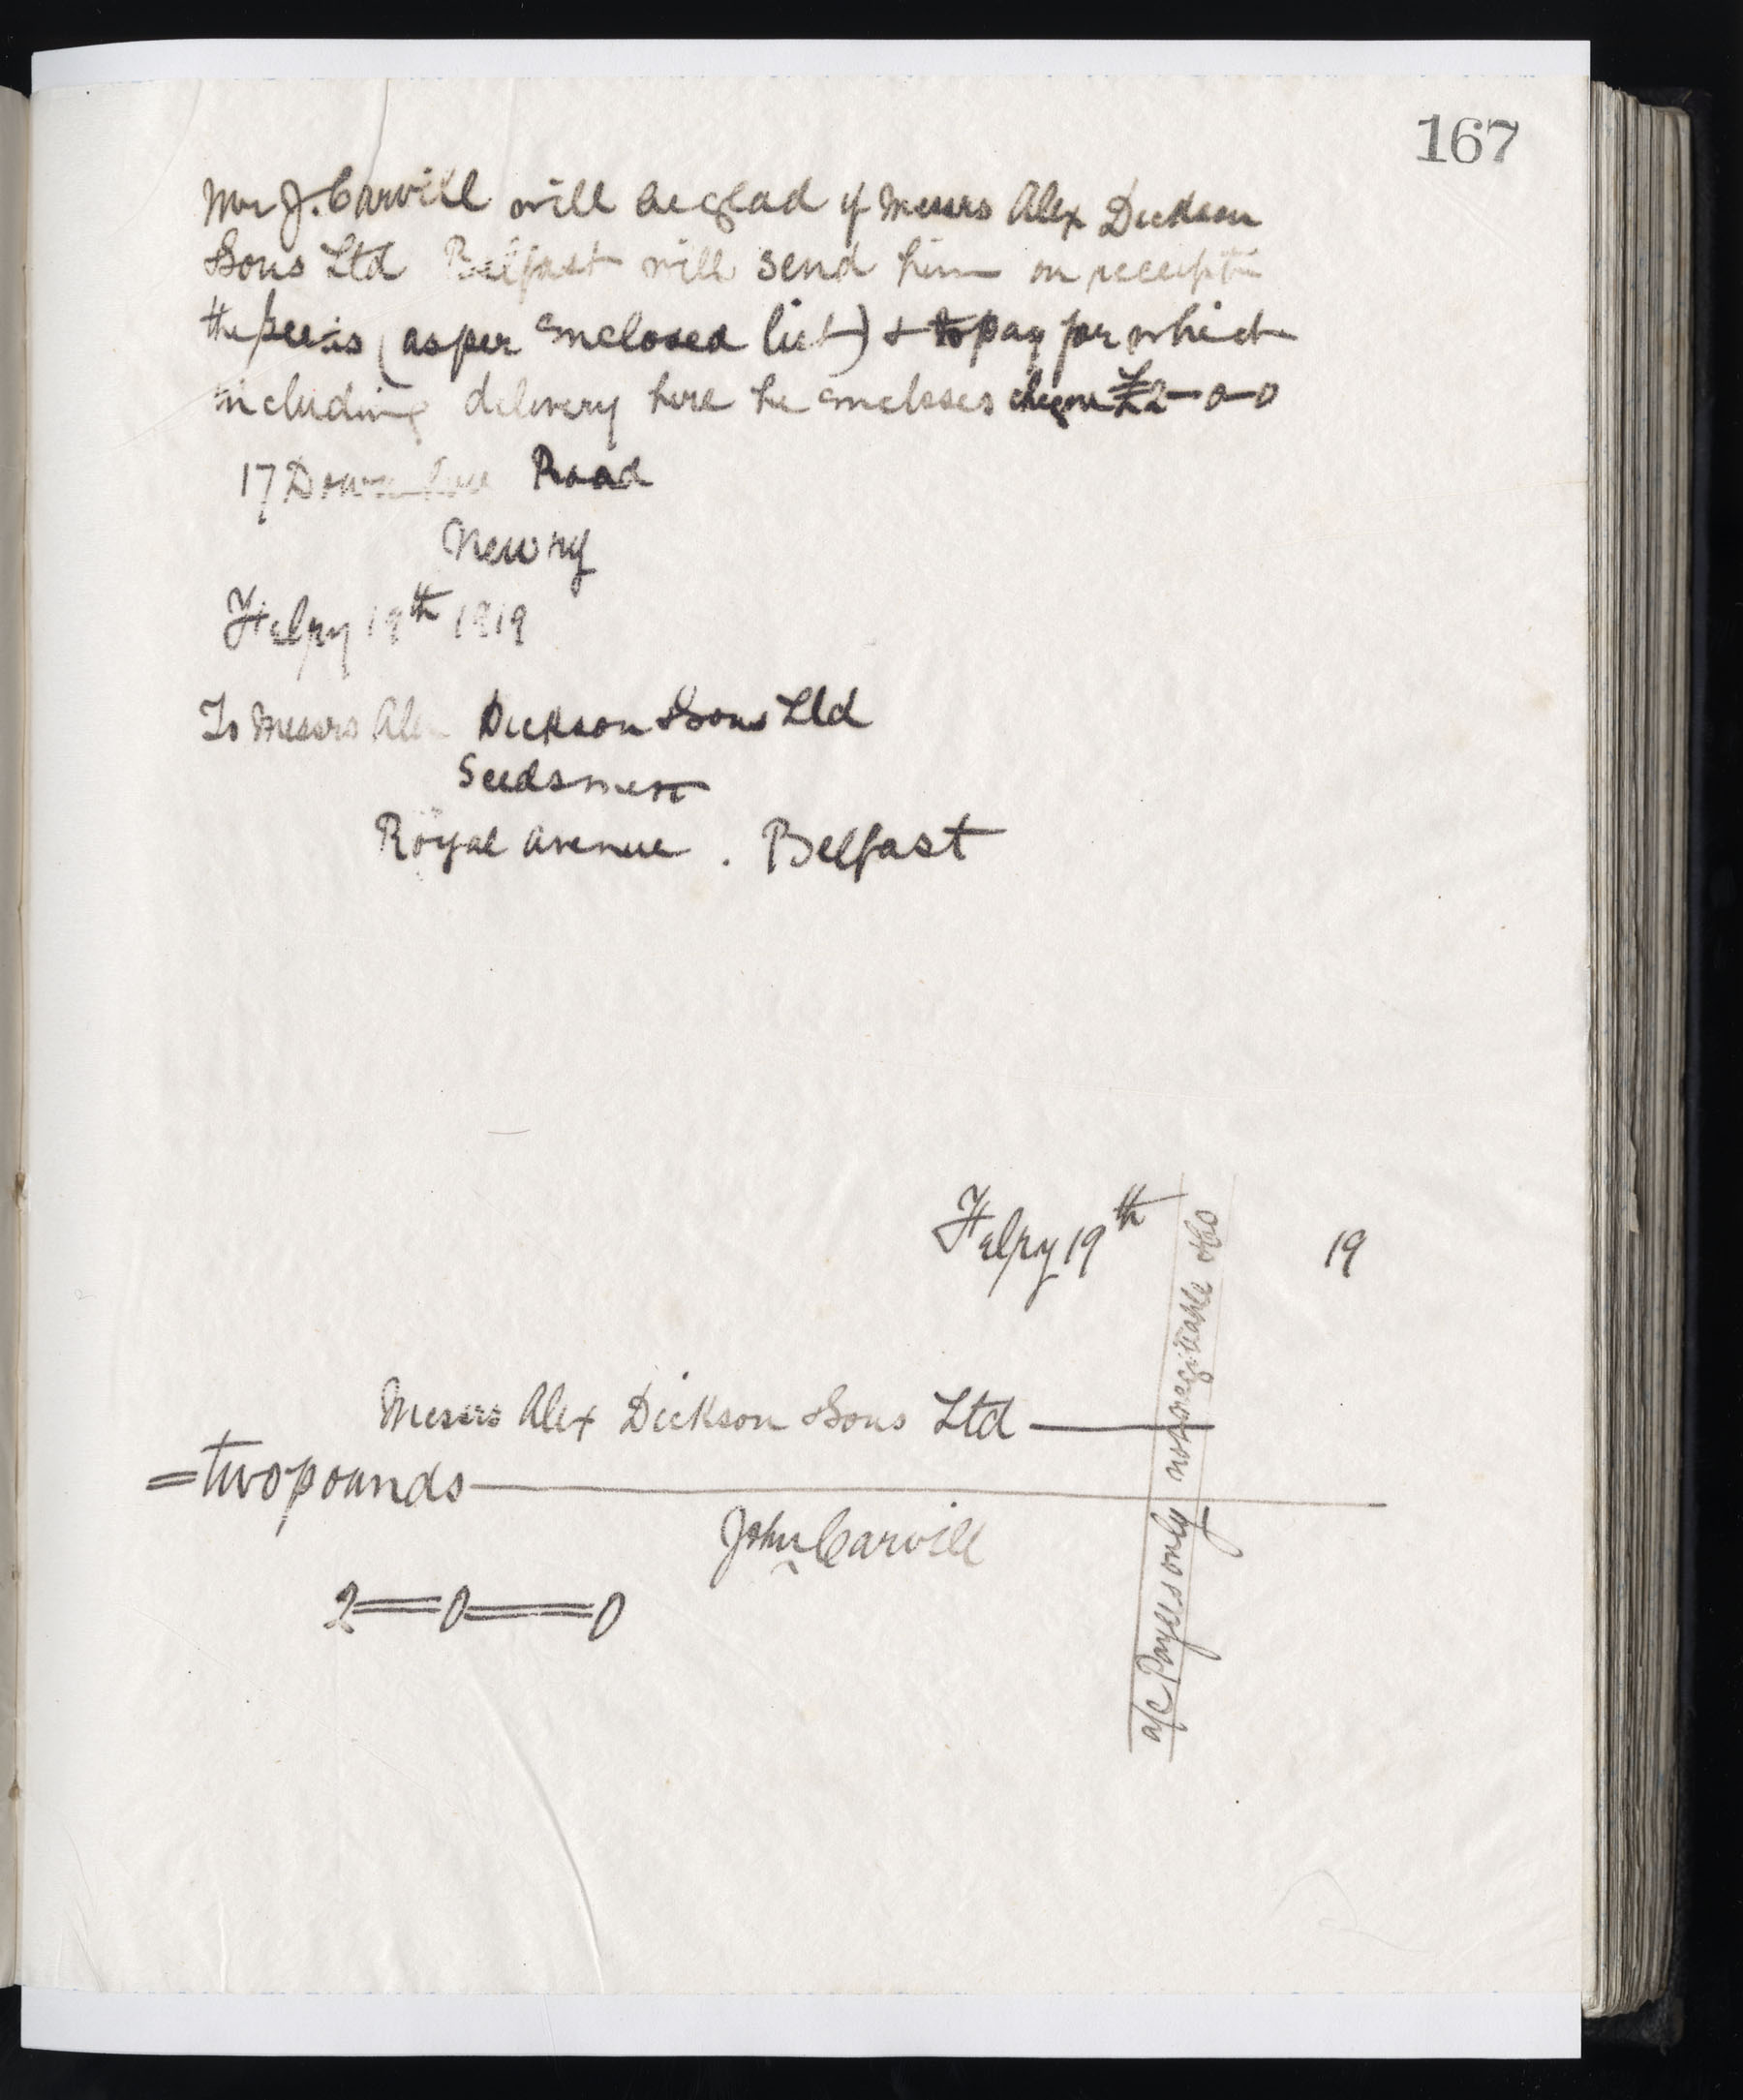 167
Mr J. Carvill will be glad if Messrs Alex Dickson
& Sons Ltd Belfast will send him on receipt
the (as per enclosed list) & to pay for which
including delivery here he encloses cheque £2-0-0
17 Downshire Road
Newry
Febry 19th 1919
To Messrs Alex Dickson & Sons Ltd
Seedsmen
Royal Avenue . Belfast
Febry 19th 19
Messrs Alex Dickson & Sons Ltd
= two pounds
John Carvill
2=0=0
a/c Payees only not negotiable & Co